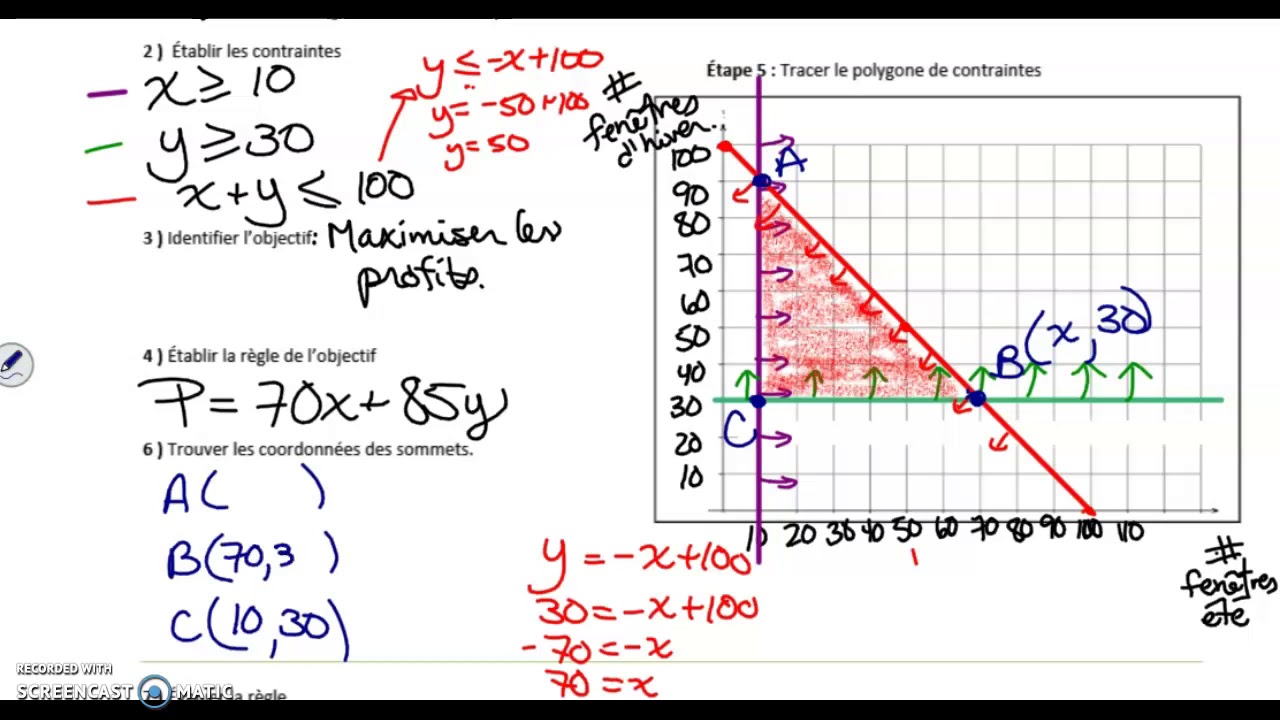 2 ) Établir les contraintes
x ≥ 10
y ≥ 30
x + y ≤ 100
y ≤ -x + 100
y = -50 + 100
y = 50
3 ) Identifier l'objectif : Maximiser les
profits.
4 ) Établir la règle de l'objectif
P = 70x + 85y
6 ) Trouver les coordonnées des sommets.
A (      )
B (70,3   )
C (10,30)
Étape 5 : Tracer le polygone de contraintes
#
fenêtres
d'hiver.
100
90
80
70
60
50
40
30
20
10
A
B (x, 30)
C
10 20 30 40 50 60 70 80 90 100 110
#
fenêtres
été
y = -x + 100
30 = -x + 100
-70 = -x
70 = x
RECORDED WITH
SCREENCAST MATIC
la règle